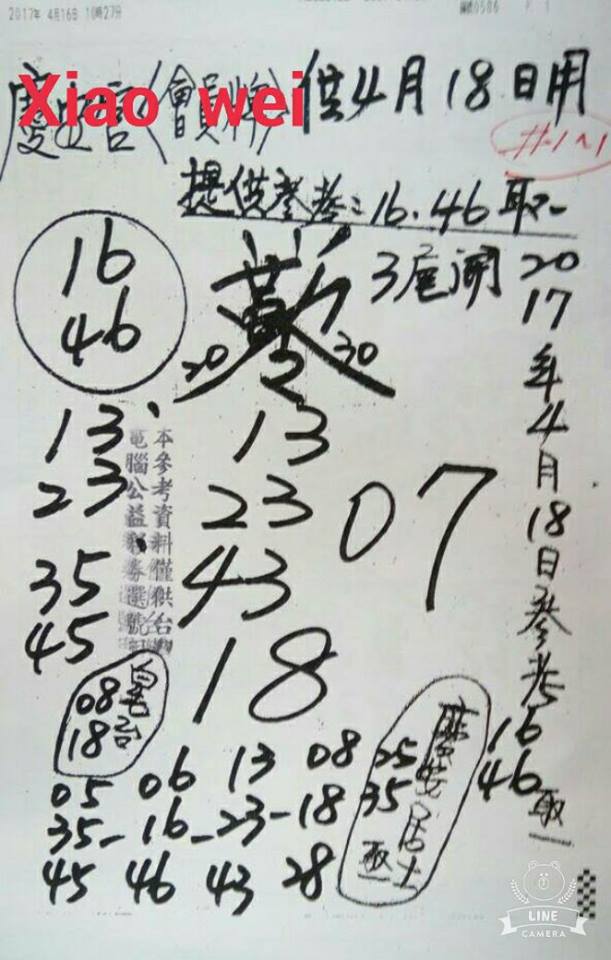 2017年 4月16日 10時27分
Xiao wei
(會員牌) 供4月18日用
提供參考:16.46取一
16
46
3尾開
20 30
13 13
23 23
35 43
45
07
18
本參考資料僅供台灣
電腦公益彩券選號
2017年4月18日參考
16
46
取一
08
18
25
35
取一
居士
05 06 13 08
35-16-23-18
45 46 43 28
LINE
CAMERA